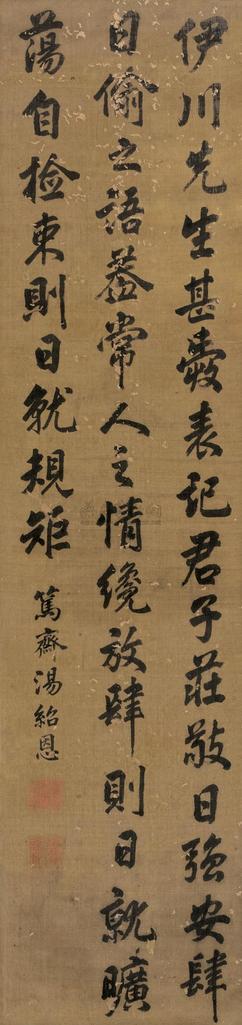 伊川先生甚愛表記君子莊敬日強安肆
日偷之語蓋常人之情纔放肆則日就曠
蕩自檢束則日就規矩
篤齋湯紹恩